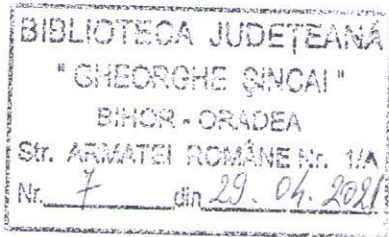 BIBLIOTECA JUDEȚEANĂ
"GHEORGHE ȘINCAI"
BIHOR - ORADEA
Str. ARMATEI ROMÂNE Nr. 1/A
Nr. 7 din 29. 04. 2021